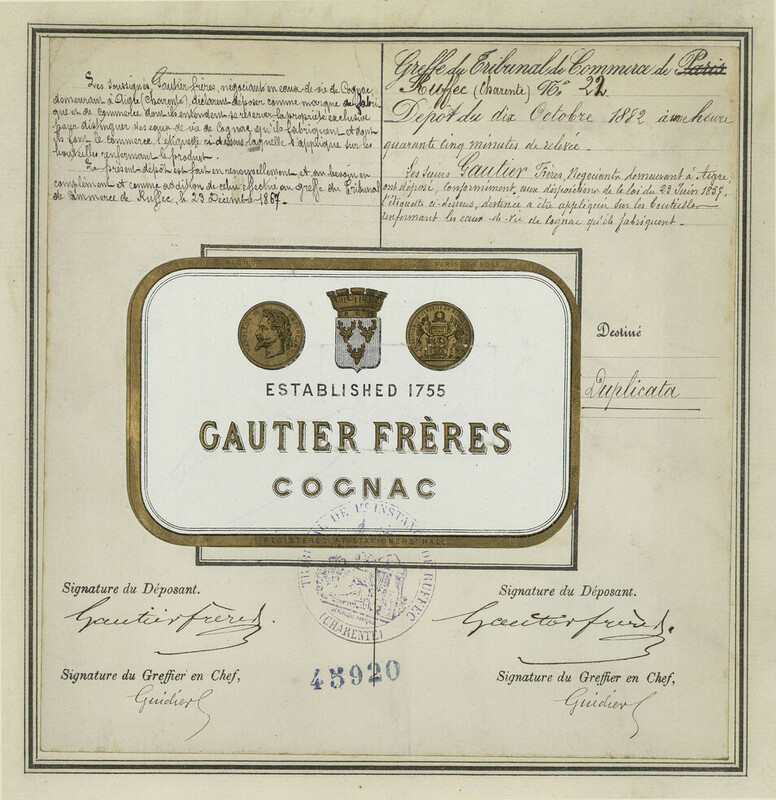 Les soussignés Gautier frères, négociant en eaux-de-vie de Cognac,
demeurant à Aigre (Charente), déclarent déposer comme marque de fabri-
que et de commerce dont ils entendent se réserver la propriété exclusive
pour distinguer les eaux-de-vie de Cognac qu'ils fabriquent et dont
ils font le commerce l'étiquette ci-dessous laquelle s'applique sur les
bouteilles renfermant le produit.
Le présent dépôt est fait en renouvellement et au besoin en
complément et comme addition de celui effectué au Greffe du Tribunal
de Commerce de Ruffec, le 23 Décembre 1867.
Greffe du Tribunal de Commerce de Paris
Ruffec (Charente) No 22
Dépôt du dix Octobre 1882 à une heure
quarante cinq minutes de relevée.
Les sieurs Gautier Frères, Négociants demeurant à Aigre,
ont déposé, conformément, aux dispositions de la loi du 23 Juin 1857,
l'étiquette ci-dessus, destinée a être appliquée sur les bouteilles
renfermant les eaux-de-vie de Cognac qu'ils fabriquent.
ESTABLISHED 1755
GAUTIER FRÈRES
COGNAC
REGISTERED AT STATIONERS' HALL
Destiné
Duplicata
TRIBUNAL DE 1re INSTANCE DE RUFFEC
(CHARENTE)
Signature du Déposant.
Gautier frères
Signature du Greffier en Chef,
Guidier
45920
Signature du Déposant.
Gautier frères.
Signature du Greffier en Chef,
Guidier